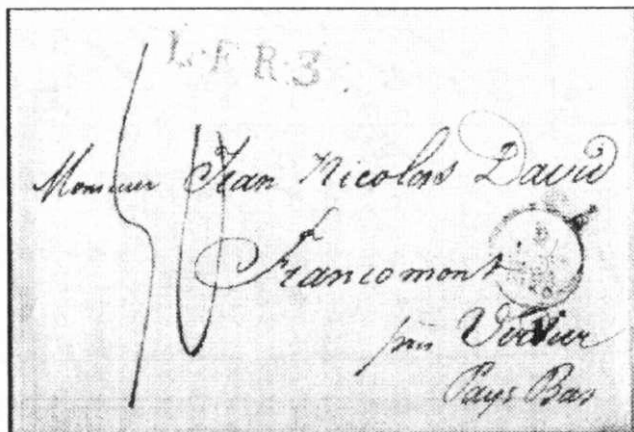 L.F.R.3.
Monsieur Jean Nicolas David
Francomont
près Vervier
Pays Bas